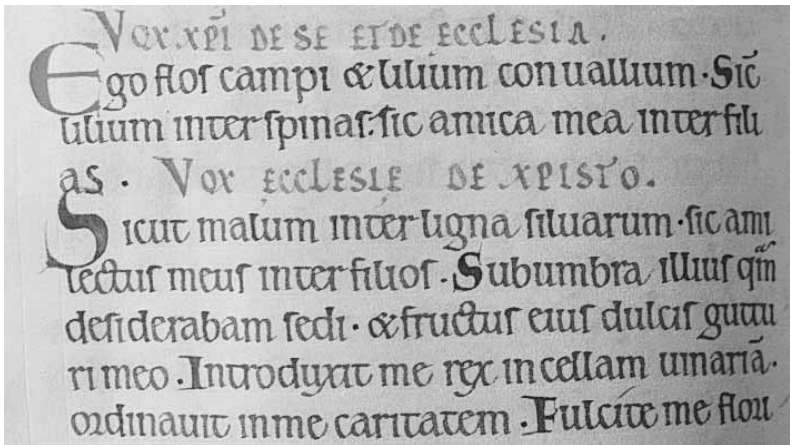 Vox xp̄i de se et de ecclesia.
Ego flos campi & lilium conuallium. Sic̄
lilium inter spinas: sic amica mea inter fili
as. Vox ecclesie de xpisto.
Sicut malum inter ligna siluarum. sic ami
lectus meus inter filios. Sub umbra illius qm̄
desiderabam sedi. & fructus eius dulcis guttu
ri meo. Introduxit me rex in cellam uinariā.
ordinauit in me caritatem. Fulcite me flori